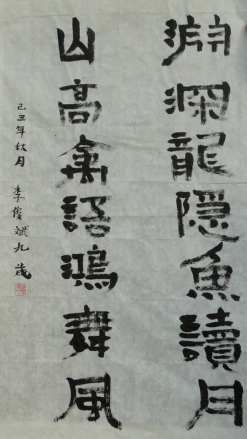 渊深龍隱魚讀月
山高禽語鴻舞風
己丑年秋月 李俊斌九歲